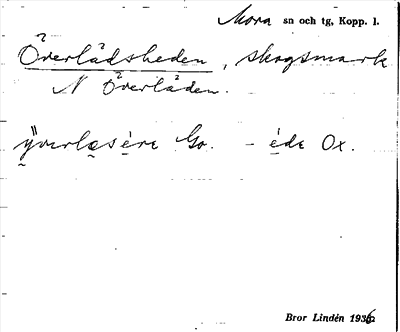 Mora sn och tg, Kopp. l.
Överlådsheden, skogsmark
N Överlåden.
ÿvelǝsére Go. - éde Ox.
Bror Lindén 1936